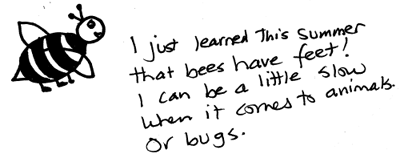 I just learned This summer
that bees have feet!
I can be a little slow
when it comes to animals.
Or bugs.